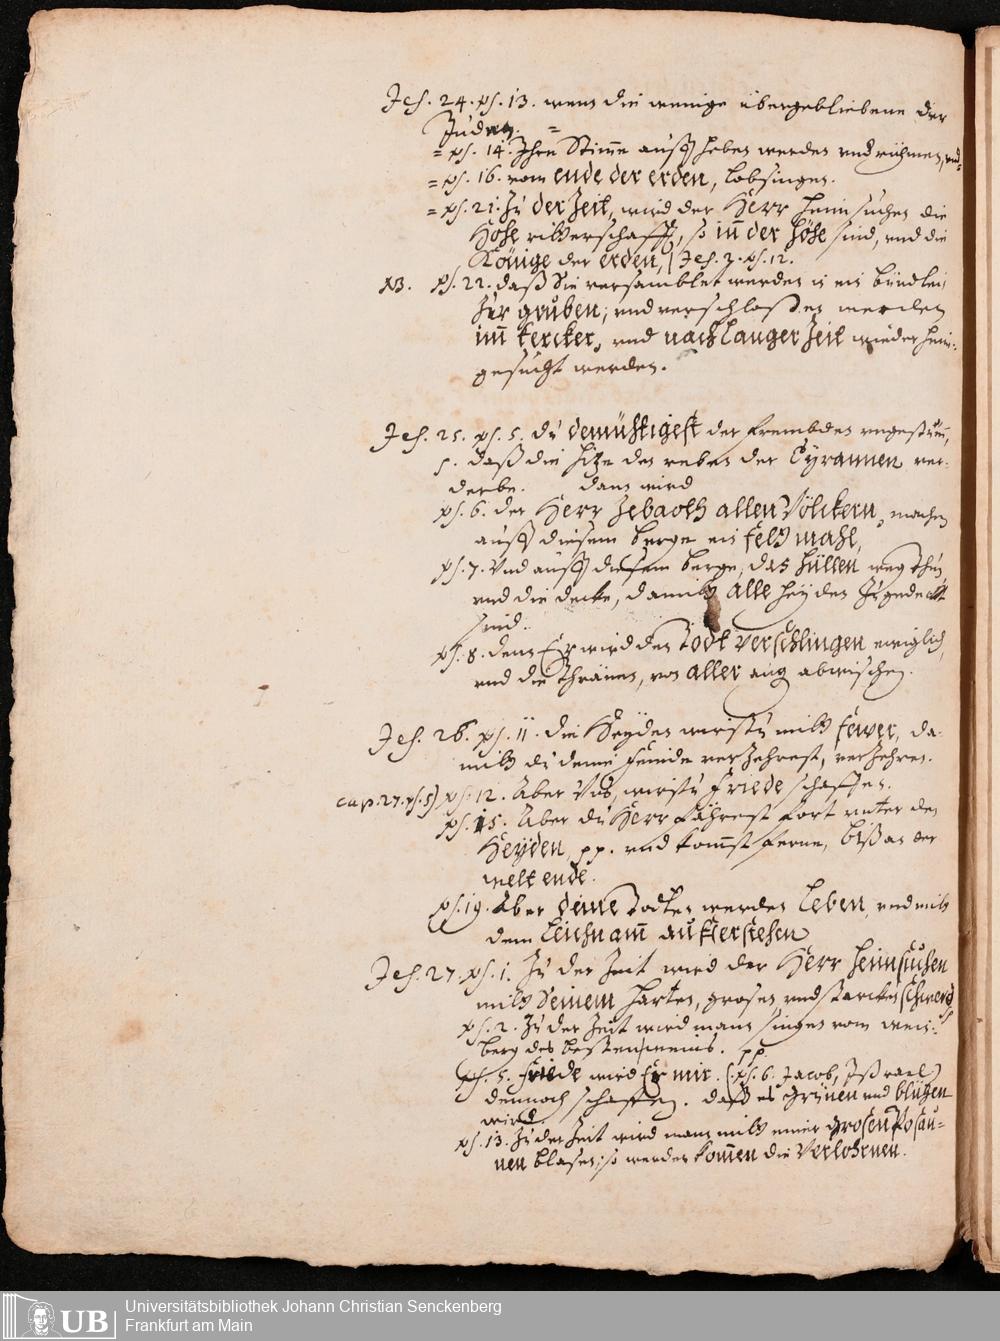 Jes. 24. ps. 13. wenn die wenige übergebliebene der
Juden. =
= ps. 14. Ihre Stimme auff heben werden und rühmen, und
= ps. 16. vom ende der erden, lobsingen.
= ps. 21. Zu der Zeit, wird der Herr heimsuchen die
Hohe ritterschafft, so inn der höhe sind, und die
Könige der erden, Jes. 2. ps. 12.
NB. ps. 22. daß Sie versamblet werden in ein bündlein
Zur gruben, und verschloßen werden
im kercker, und nach langer Zeit wieder heim-
gesucht werden.
Jes. 25. ps. 5. du demühtigest der frembden ungestüm,
5. daß die hitze den reben der Tyrannen ver-
derbe. dann wird
ps. 6. der Herr Zebaoth allen Völckern, machen
auff diesem berge ein fett mahl,
ps. 7. Und auff diesem berge, das hüllen weg thun
und die decke, damitt alle heyden Zugedeckt
sind.
ps. 8. denn Er wird den Todt verschlingen ewiglich,
und die thränen, von aller aug abwischen.
Jes. 26. ps. 11. die Heyden wirstu mitt fewer, da-
mitt du deine feinde verzehrest, verzehren.
cap. 27. ps. 5) ps. 12. Aber Uns wirstu friede schaffen.
ps. 15. Aber du Herr fährest fort unter den
Heyden, pp. und kommst ferne, biß an der
welt ende.
ps. 19. Aber deine Todten werden leben, und mitt
dem leichnam aufferstehen
Jes. 27. ps. 1. Zu der Zeit wird der Herr heimsuchen
mitt Seinem harten, grosen und starcken schwerd
ps. 2. Zu der Zeit wird mann singen vom wein-
berg des besten weins. pp.
ps. 5. friede wird Er mir. (ps. 6. Jacob, Ißrael)
dennoch schaffen. daß es grünen und blühen
wird.
ps. 13. Zu der Zeit wird mann mitt einer grosen Posau-
nen blasen; so werden kommen die Verlohrnen.
Universitätsbibliothek Johann Christian Senckenberg
Frankfurt am Main
UB